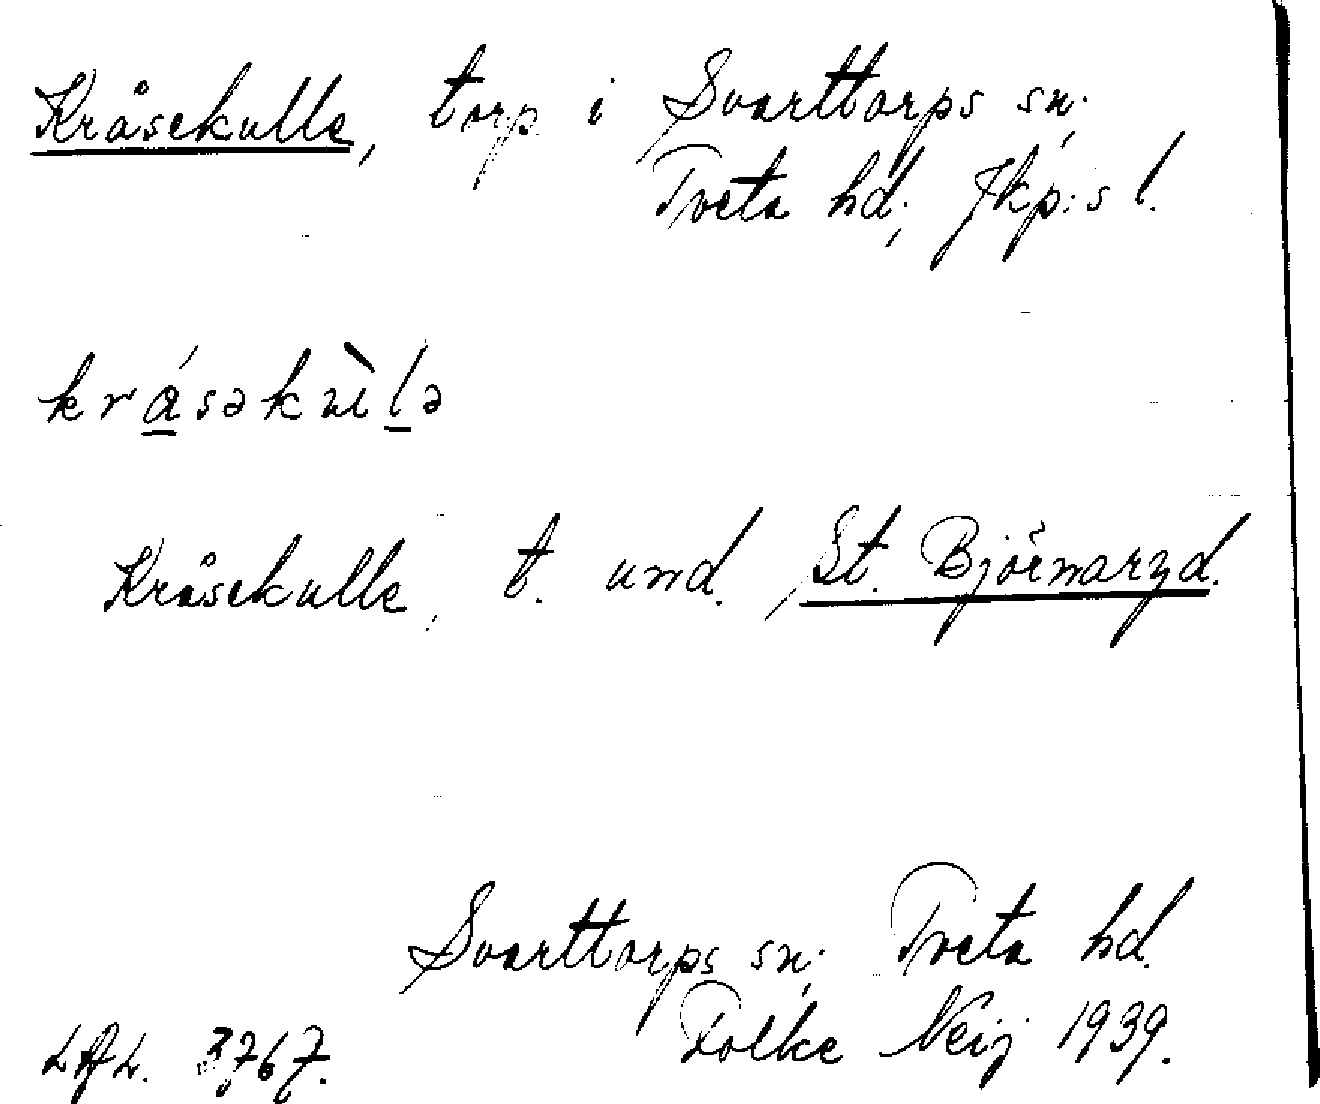 Kråsekulle, torp i Svarttorps sn;
Tveta hd; Jkp:s l.
krásəkùlə
Kråsekulle, t. und. St. Björnaryd.
Svarttorps sn; Tveta hd.
LAL. 3767. Folke Neij 1939.